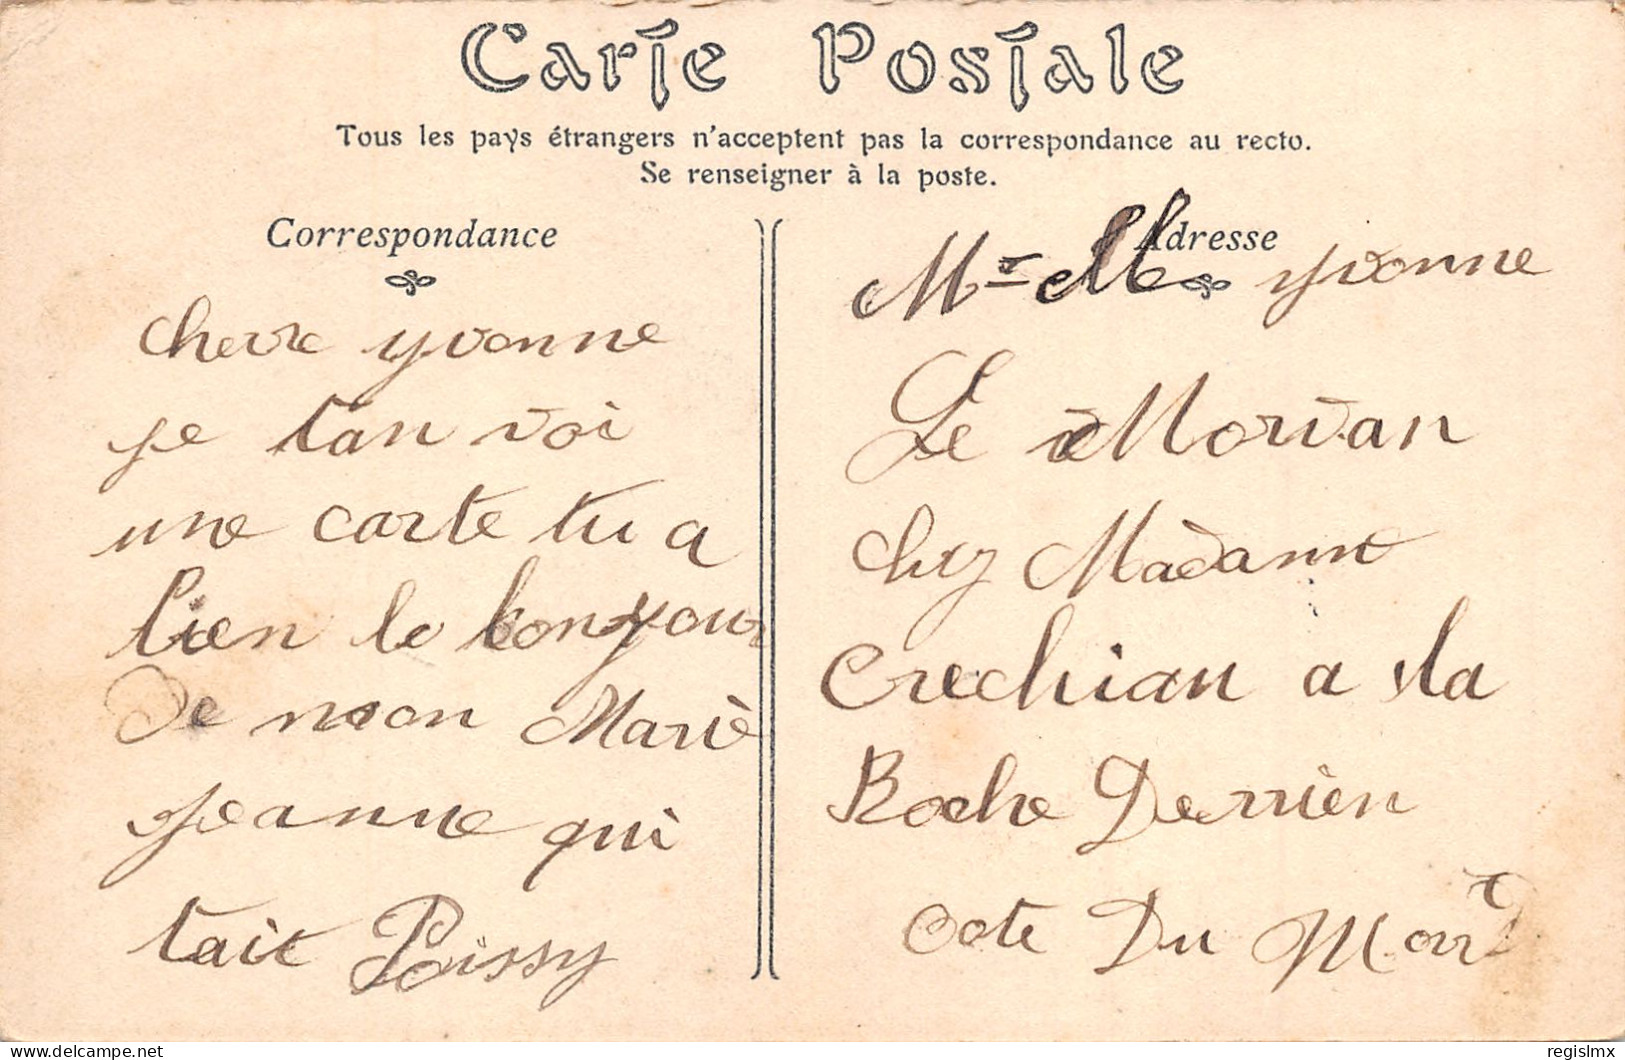 Carte Postale
Tous les pays étrangers n'acceptent pas la correspondance au recto.
Se renseigner à la poste.
Correspondance
cherre yvonne
je tan voi
une carte tu a
bien le bonyour
De mon Marie
jeanne qui
tait Poissy
Adresse
Melle yvonne
Le Morvan
chez Madame
Crechian a la
Roche Derrien
cote Du Nort
delcampe.net
regislmx